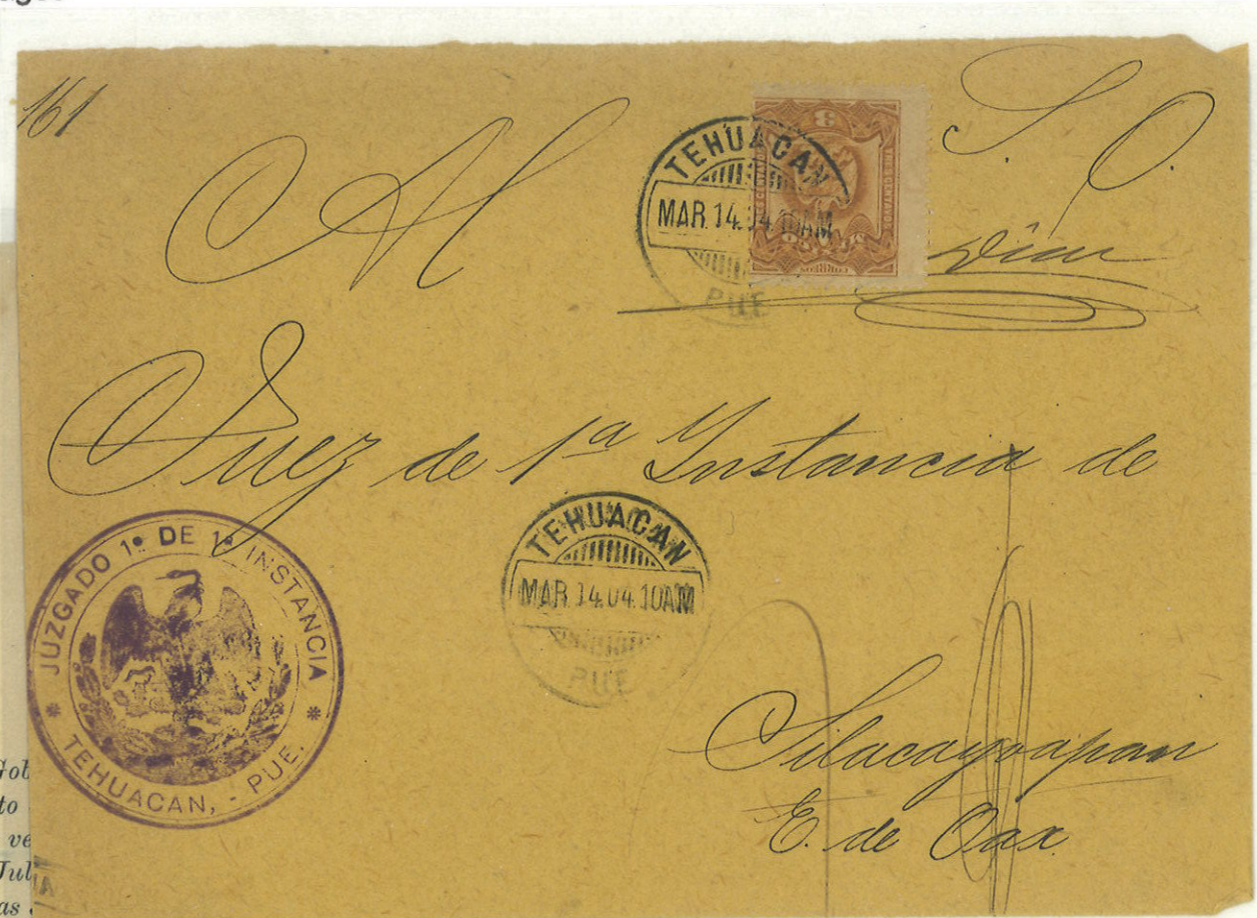 161
Al S. O.
TEHUACAN
MAR.14.04.10AM
PUE
3
CORREOS
Juez de 1ª Instancia de
TEHUACAN
MAR.14.04.10AM
PUE
JUZGADO 1º DE 1ª INSTANCIA
TEHUACAN, - PUE.
Silacayoapan
E. de Oax.
Gob
to
ve
Jul
as